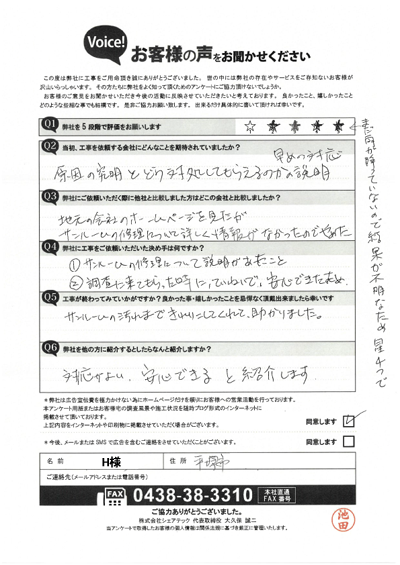 Voice!
お客様の声をお聞かせください
この度は弊社に工事をご用命頂き誠にありがとうございました。世の中には弊社の存在やサービスをご存知ないお客様が
沢山いらっしゃいます。その方たちに弊社をよく知って頂くためのアンケートにご協力頂けませんでしょうか。
お客様のご意見をお聞かせいただき今後の活動に反映させていただきたいと考えております。良かったこと、嬉しかったこと
どのような些細な事でも結構です。是非ご協力お願い致します。出来るだけ具体的に書いて頂ければ幸いです。
Q1 弊社を5段階で評価をお願いします
まだ雨が降っていないので結果が不明なため星4つで
Q2 当初、工事を依頼する会社にどんなことを期待されていましたか?
早めの対応
原因の究明とどう対処してもらえるのかの説明
Q3 弊社にご依頼いただく際に他社と比較しました方はどこの会社と比較しましたか?
地元の会社のホームページを見たが
サンルームの修理について詳しく情報がなかったのでやめた
Q4 弊社に工事をご依頼いただいた決め手は何ですか?
①サンルームの修理について説明があったこと
②調査に来てもらった時に、ていねいで、安心できたため
Q5 工事が終わってみていかがですか?良かった事・嬉しかったことを忌憚なく頂戴出来ましたら幸いです
サンルームの汚れまできれいにしてくれて、助かりました。
Q6 弊社を他の方に紹介するとしたらなんと紹介しますか?
対応がよい、安心できると紹介します
※弊社は広告宣伝費を極力かけない為にホームページだけを頼りにお客様への営業活動を行っております。
本アンケート用紙またはお客様宅の調査風景や施工状況を随時ブログ形式のインターネットに
掲載させて頂いております。
上記内容をインターネットや印刷物に掲載させていただく場合がございます。 同意します
※今後、メールまたはSMSで広告を含むご連絡をさせていただくことがございます。 同意します
名前 H様 住所 平塚市
ご連絡先(メールアドレスまたは電話番号)
FAX 0438-38-3310 本社直通 FAX番号
ご協力ありがとうございました。
株式会社シェアテック 代表取締役 大久保 誠二
当アンケートで取得したお客様の個人情報は関係法規に基づき厳正に管理いたします。
池田